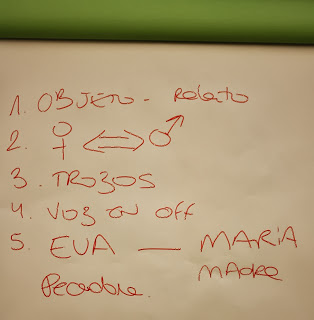 1. OBJETO - Relato
2. ♀ ⟺ ♂
3. TROZOS
4. VOZ EN OFF
5. EVA — MARIA
Pecadora. MADRE